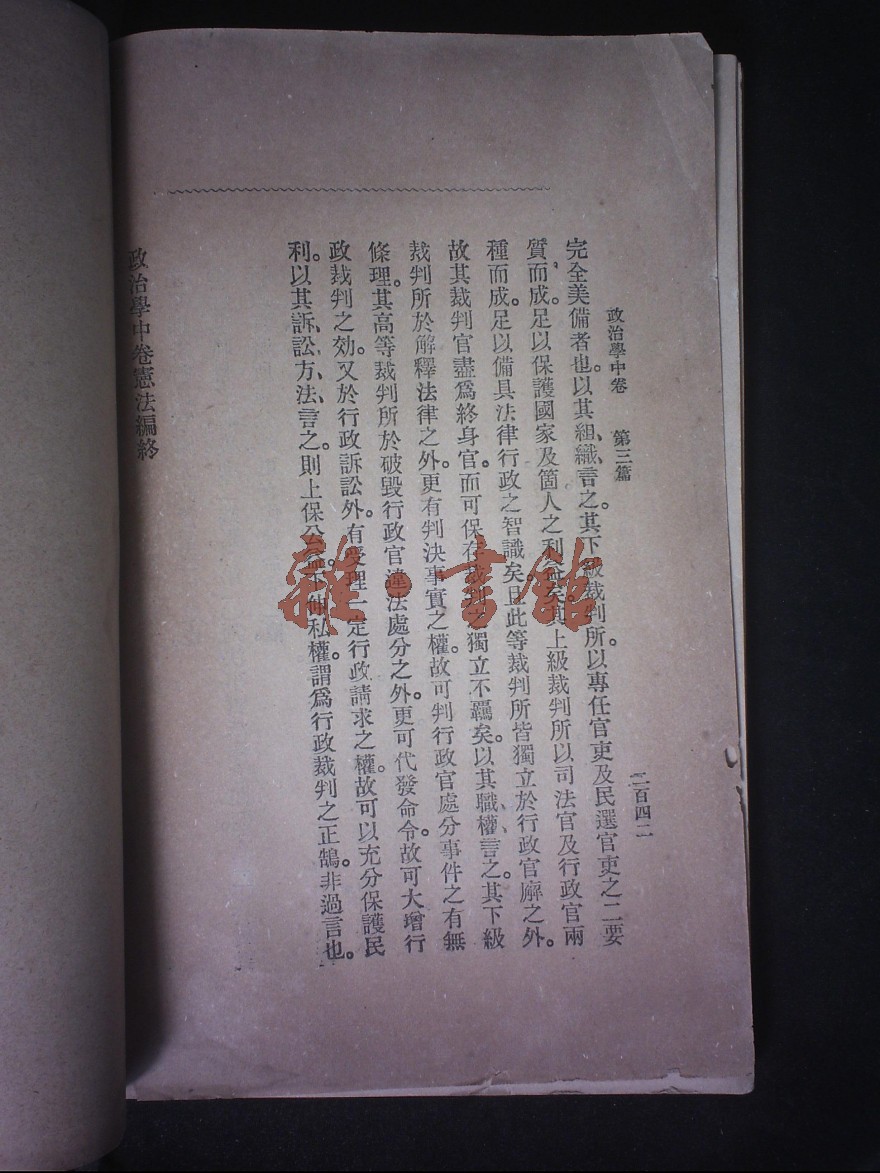 政治學中卷　第三篇　二百四二
完全美備者也。以其組織言之。其下級裁判所。以專任官吏及民選官吏之二要
質而成。足以保護國家及箇人之利益矣。其上級裁判所以司法官及行政官兩
種而成。足以備具法律行政之智識矣。且此等裁判所皆獨立於行政官廨之外。
故其裁判官盡爲終身官。而可保存裁判之獨立不羈矣。以其職權言之。其下級
裁判所於解釋法律之外。更有判決事實之權。故可判行政官處分事件之有無
條理。其高等裁判所於破毀行政官違法處分之外。更可代發命令。故可大增行
政裁判之効。又於行政訴訟外。有受理一定行政請求之權。故可以充分保護民
利。以其訴訟方法言之。則上保公益。下伸私權。謂爲行政裁判之正鵠。非過言也。
政治學中卷憲法編終
雜·書館